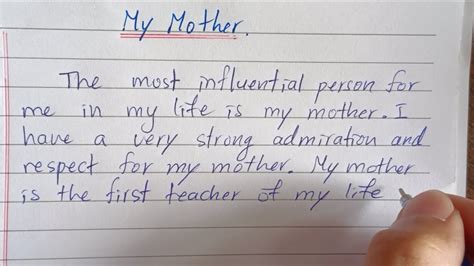 My Mother.
The most influential person for
me in my life is my mother. I
have a very strong admiration and
respect for my mother. My mother
is the first teacher of my life